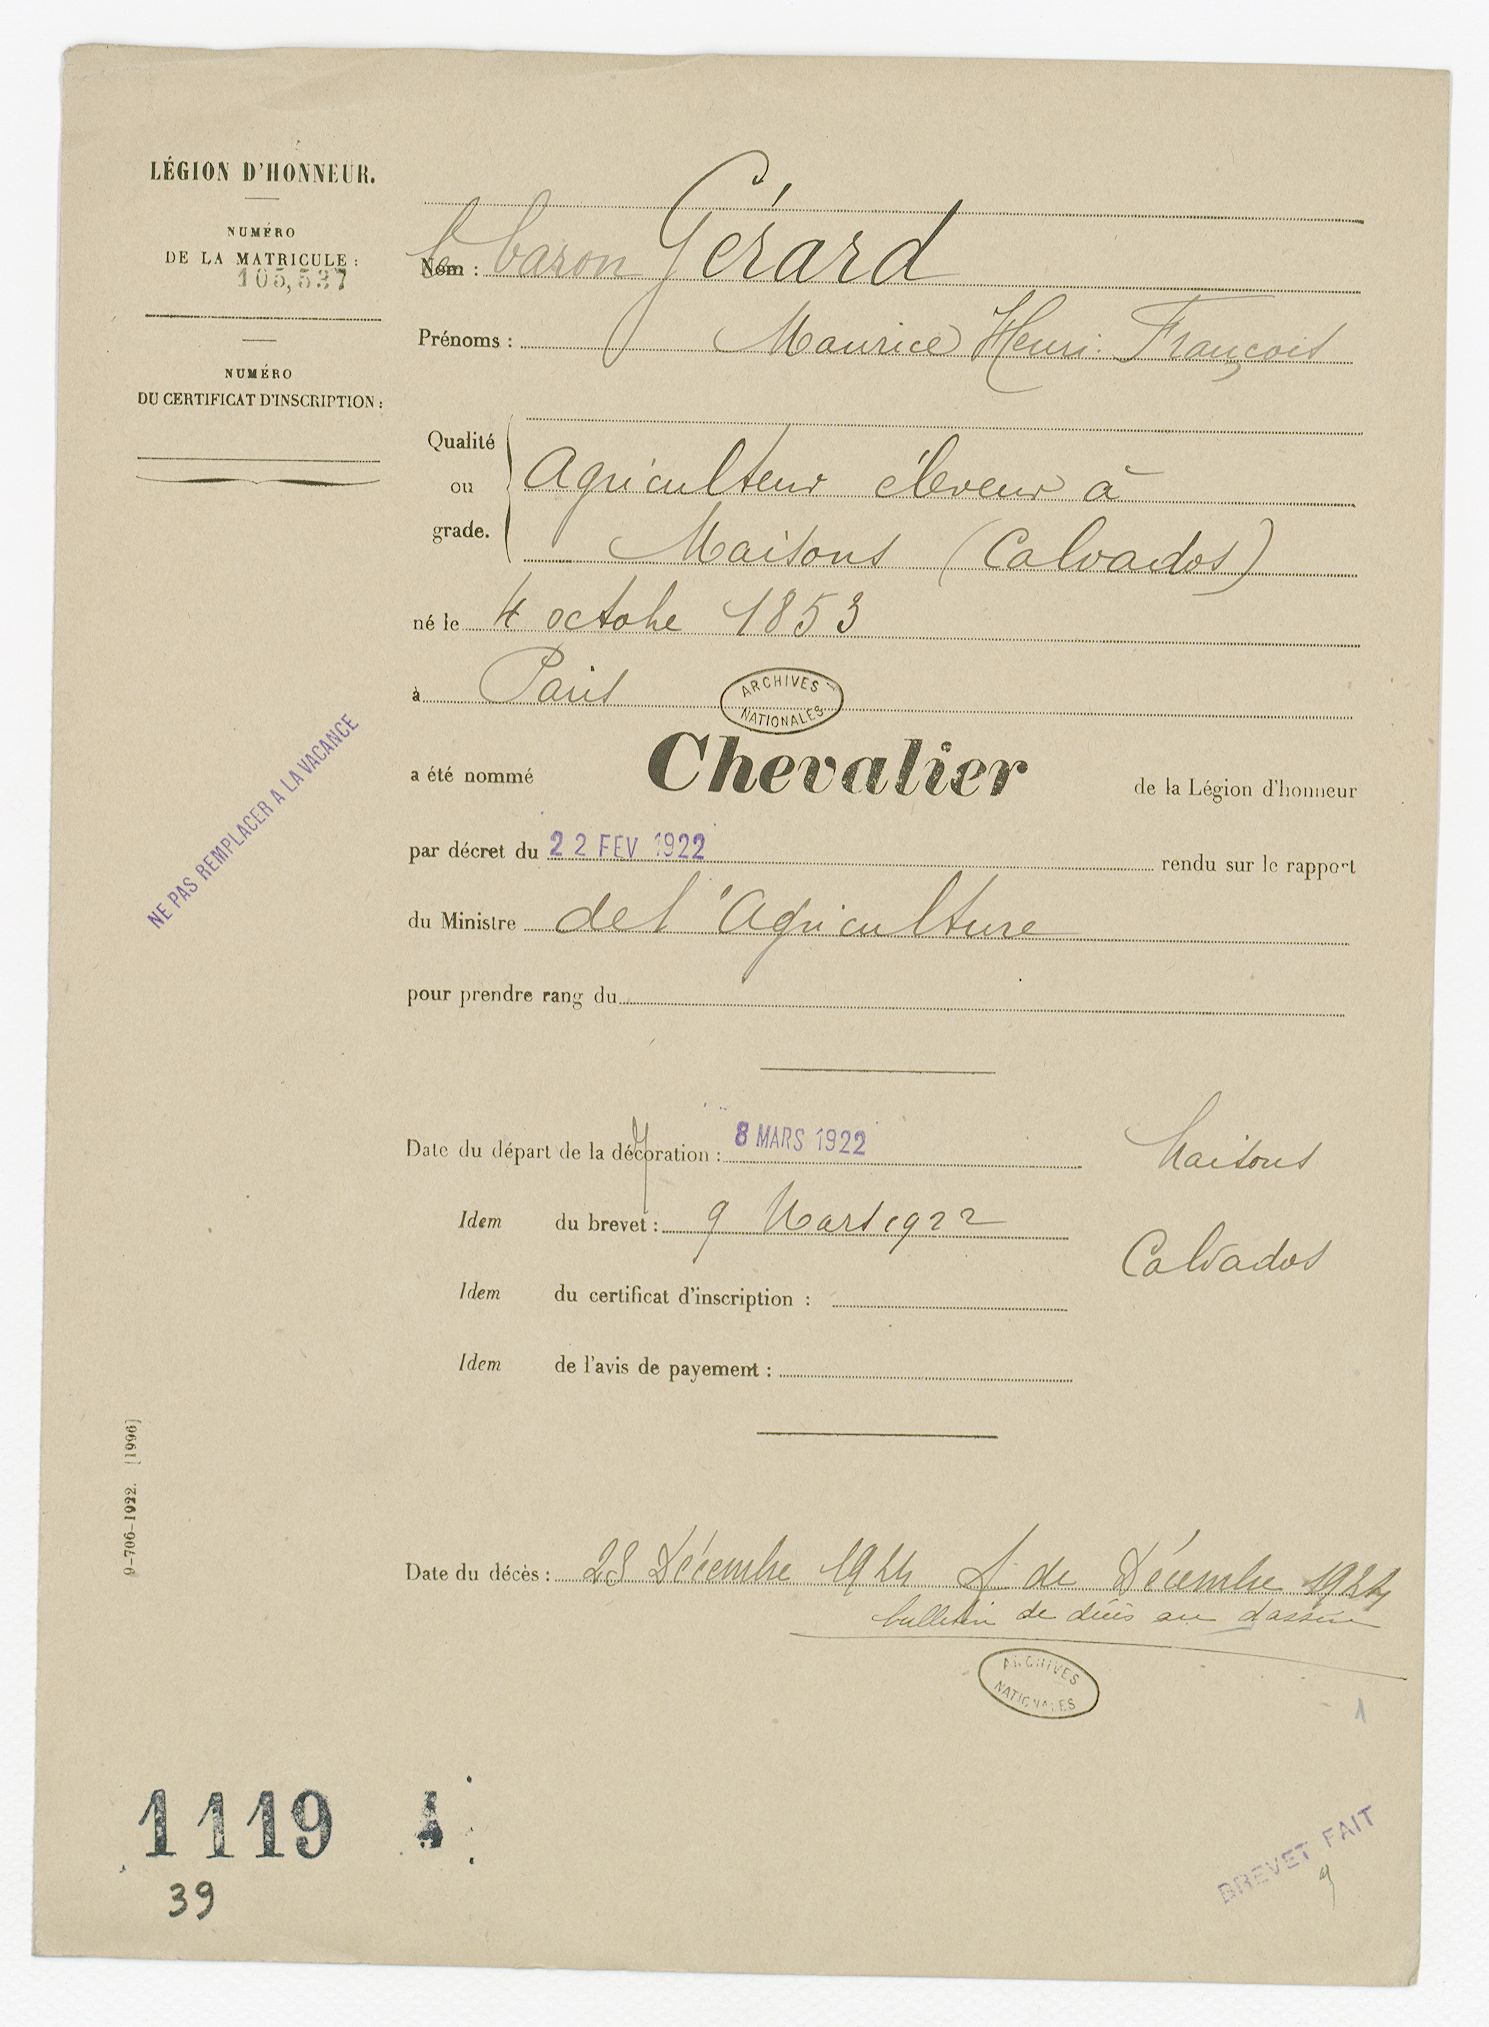 LÉGION D'HONNEUR.
NUMÉRO
DE LA MATRICULE :
105,537
NUMÉRO
DU CERTIFICAT D'INSCRIPTION :
Nom : le baron Gérard
Prénoms : Maurice Henri François
Qualité
ou
grade.
Agriculteur éleveur à
Maisons (Calvados)
né le 4 octobre 1853
à Paris
ARCHIVES
NATIONALES
a été nommé Chevalier de la Légion d'honneur
par décret du 22 FEV 1922 rendu sur le rapport
du Ministre de l'Agriculture
pour prendre rang du
NE PAS REMPLACER A LA VACANCE
Date du départ de la décoration : 8 MARS 1922
Maisons
Idem du brevet : 9 Mars 1922
Calvados
Idem du certificat d'inscription :
Idem de l'avis de payement :
9-706-1922. [1996]
Date du décès : 28 Décembre 1924 de Décembre 1924
bulletin de décès au dossier
ARCHIVES
NATIONALES
1
1119 4
39
BREVET FAIT
9